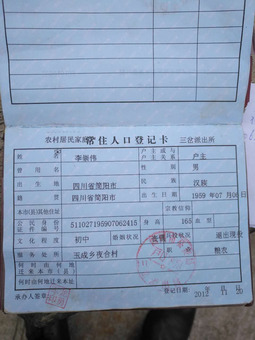 农村居民家庭 常住人口登记卡 三岔派出所
姓名 李崇伟 户主或与户主关系 户主
曾用名 性别 男
出生地 四川省简阳市 民族 汉族
籍贯 四川省简阳市 出生日期 1959年07月06日
本市(县)其他住址 宗教信仰
公民身份证件编号 511027195907062415 身高 165 血型
文化程度 初中 婚姻状况 兵役状况 退出现役
服务处所 玉成乡夜合村 粮农
何时由何地迁来本市(县)
何时由何地迁来本址
承办人签章 登记日期 2012 11 26